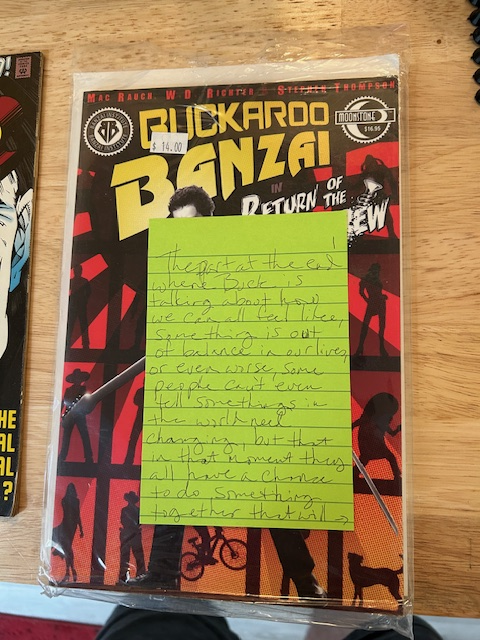 MAC RAUCH, W D RICHTER STEPHEN THOMPSON
BANZAI INSTITUTE
BUCKAROO
BANZAI
MOONSTONE
$16.95
$ 14.00
IN
RETURN OF
THE
EW
1
The part at the end
where Buck is
talking about how
we can all feel like,
something is out
of balance in our lives,
or even worse, some
people can't even
tell somethings in
the world need
changing, but that
in that moment they
all have a chance
to do something
together that will →
O!
HE
AL
AL
?